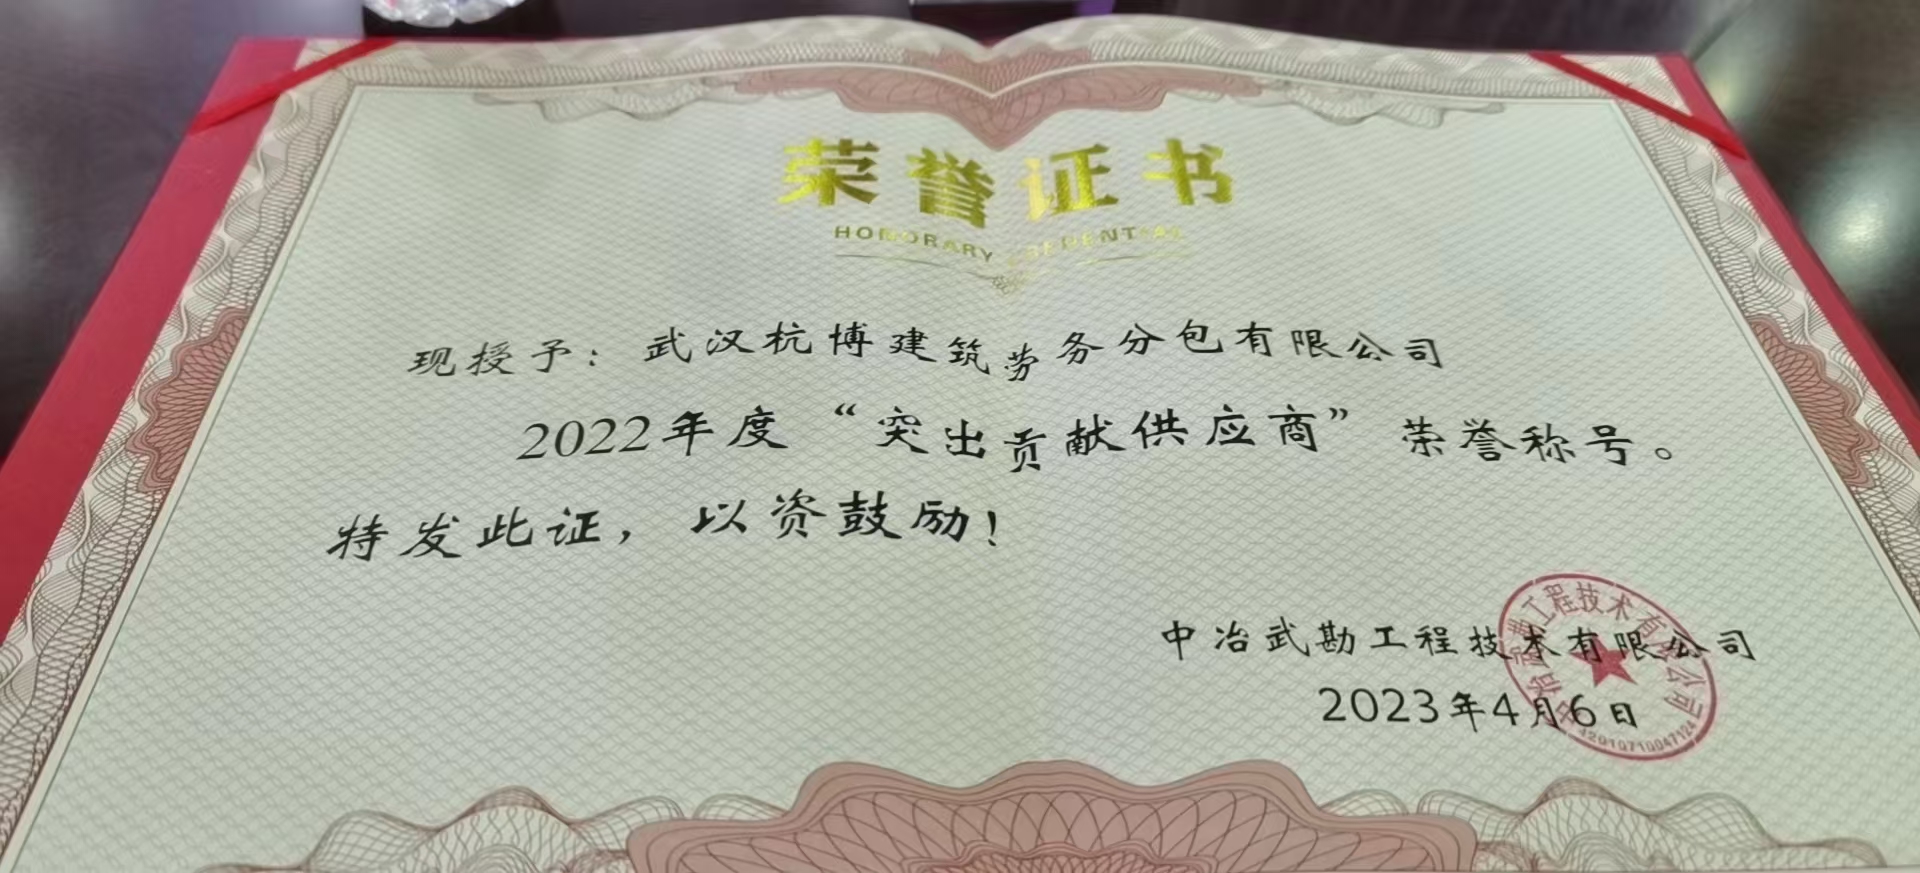 荣誉证书
HONORARY CREDENTIAL
现授予：武汉杭博建筑劳务分包有限公司
2022年度“突出贡献供应商”荣誉称号。
特发此证，以资鼓励！
中冶武勘工程技术有限公司
2023年4月6日
中冶武勘工程技术有限公司